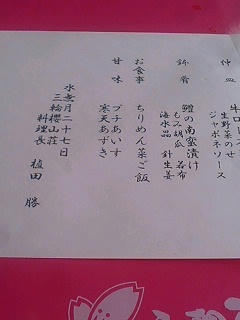 仲皿
生野菜のせ
ジャポネソース
鉢肴
鱧の南蛮漬け
もみ胡瓜 若布
海水晶 針生姜
お食事
ちりめん菜ご飯
甘味
プチあいす
寒天あずき
水無月二十七日
三輪櫻山荘
料理長 植田 勝